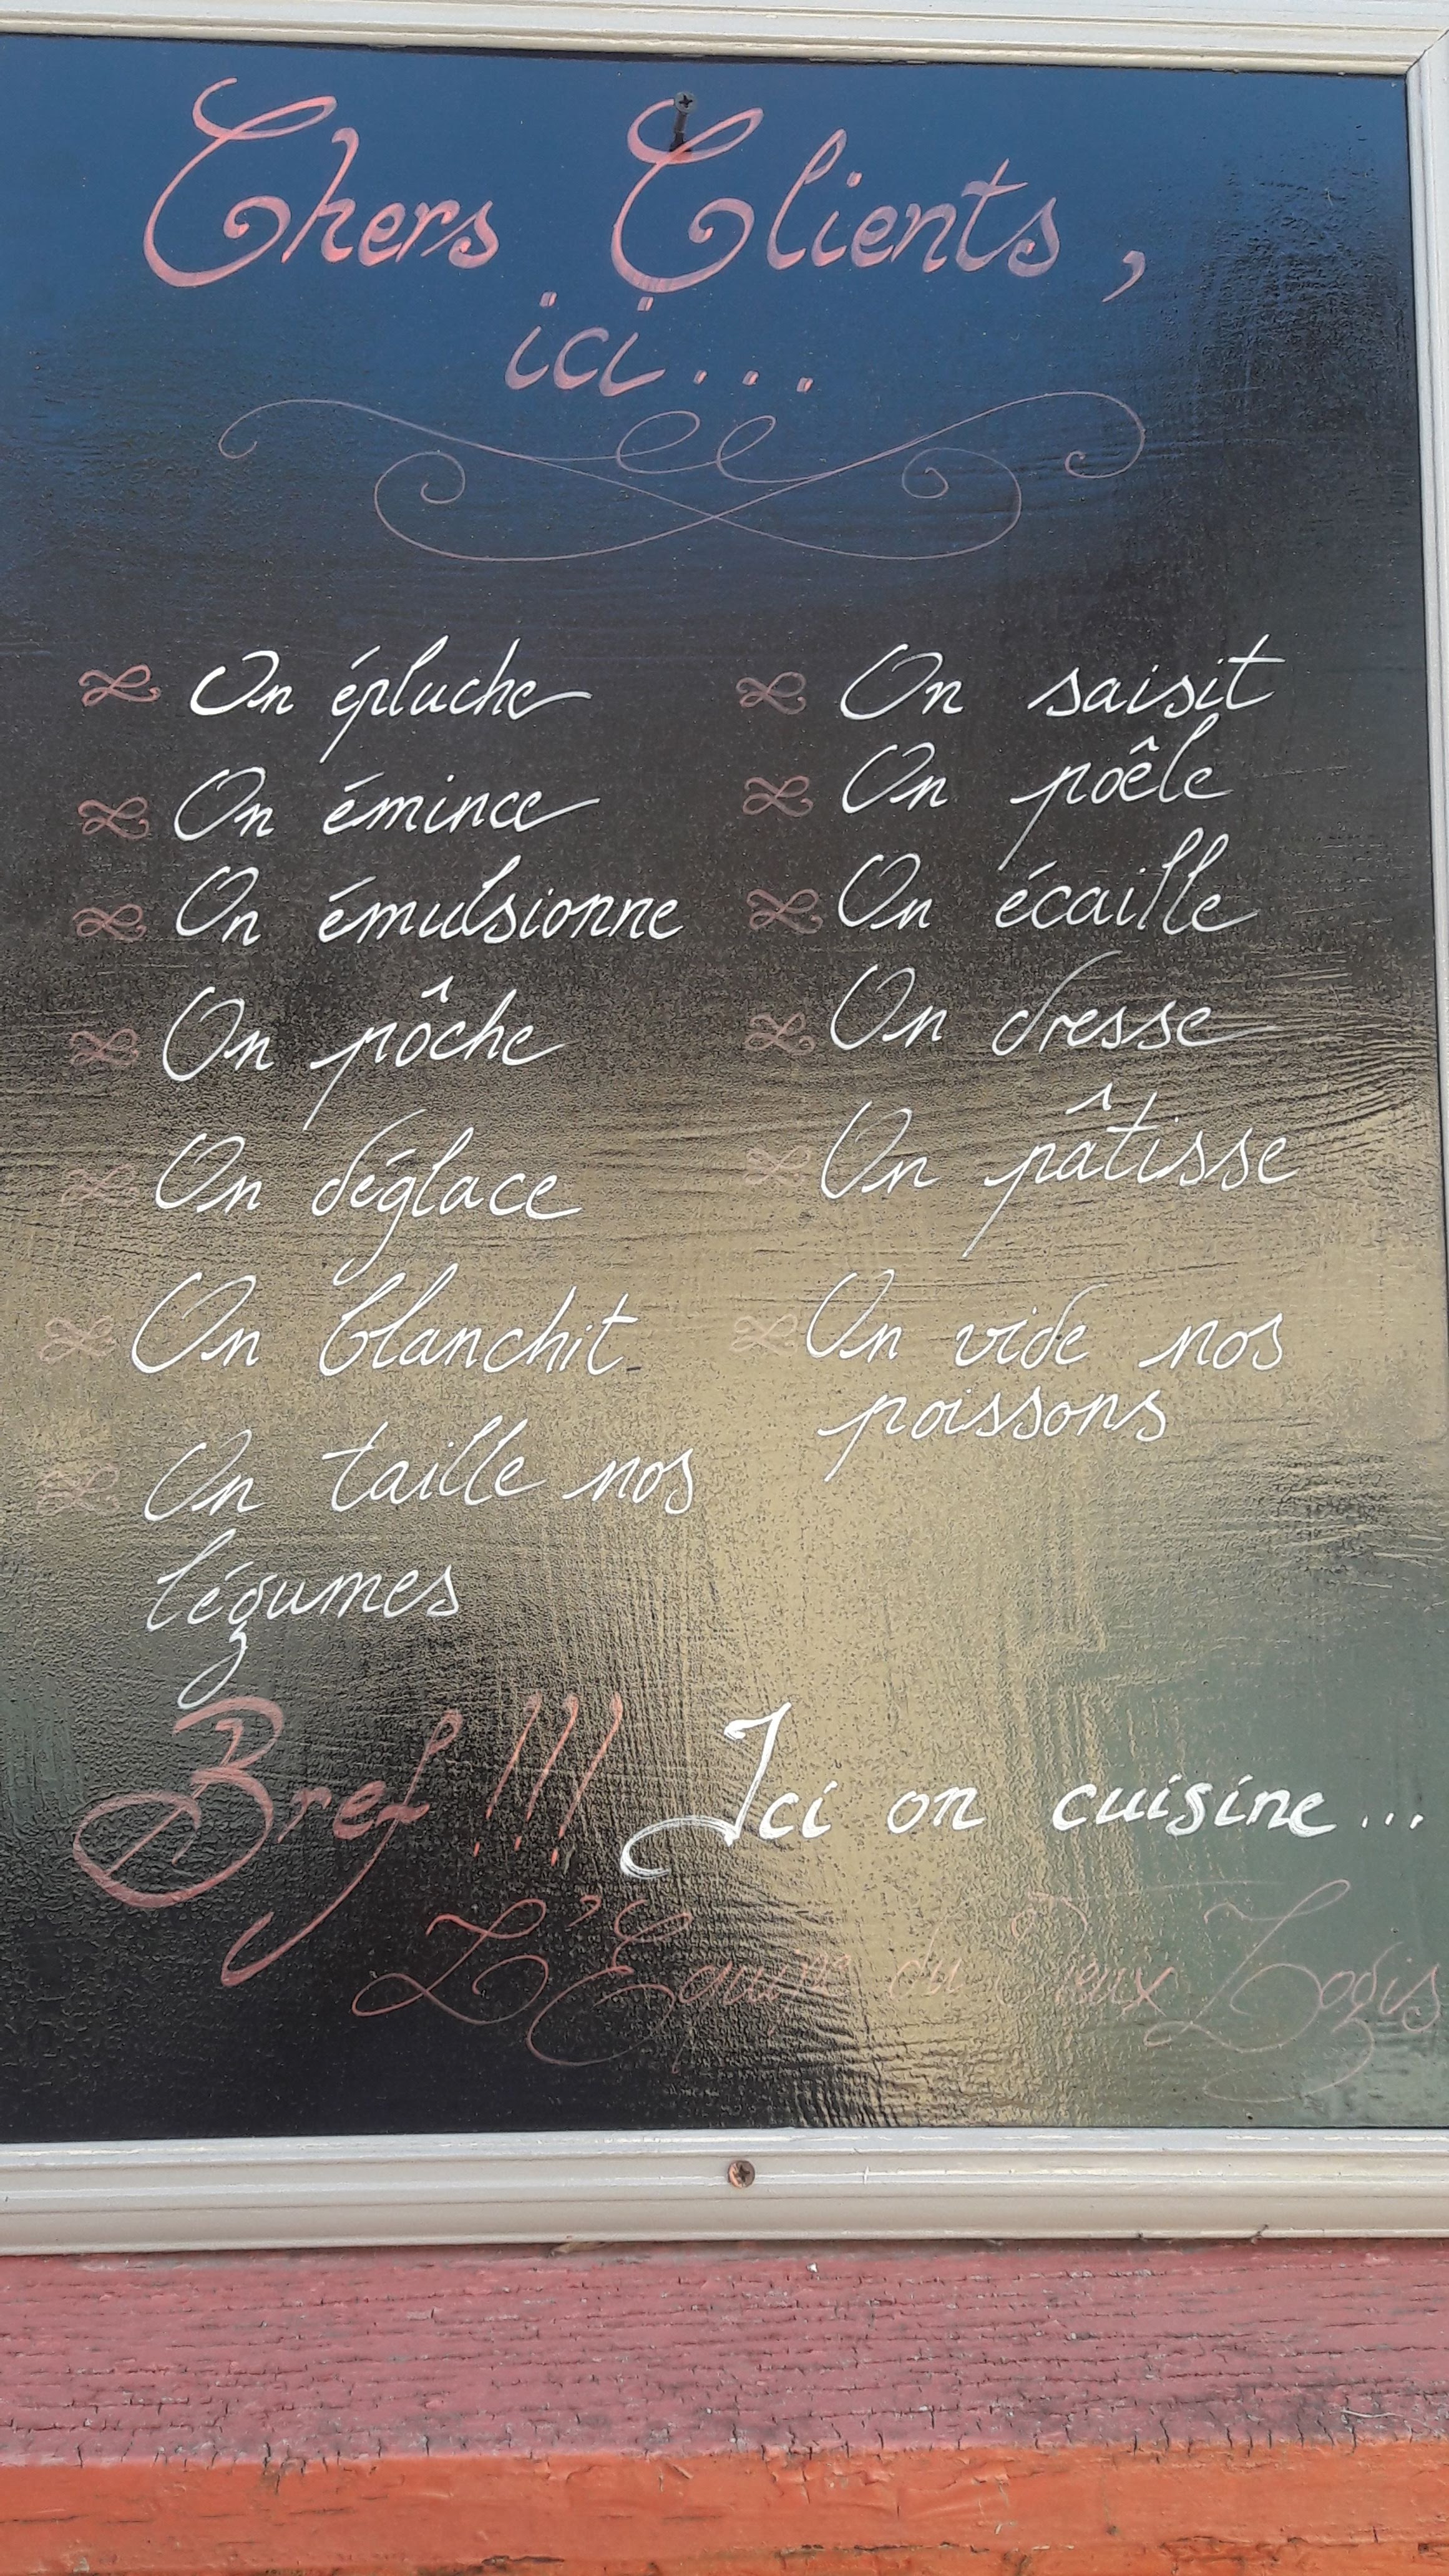 Chers Clients,
ici...
On épluche
On émince
On émulsionne
On pôche
On déglace
On blanchit
On taille nos
légumes
On saisit
On poêle
On écaille
On dresse
On pâtisse
On vide nos
poissons
Bref !!! Ici on cuisine...
L'Equipe du Vieux Logis